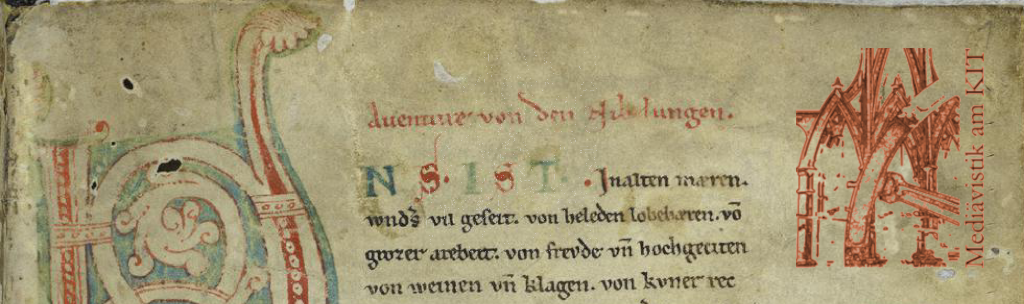 Auenture von den Nibelungen.
NS. IST. Jn alten mæren.
wnds vil geseit. von heleden lobebæren. võ
grozer arebeit. von frevde vñ hochgeciten
von weinen vñ klagen. von kvner rec
Mediävistik am KIT